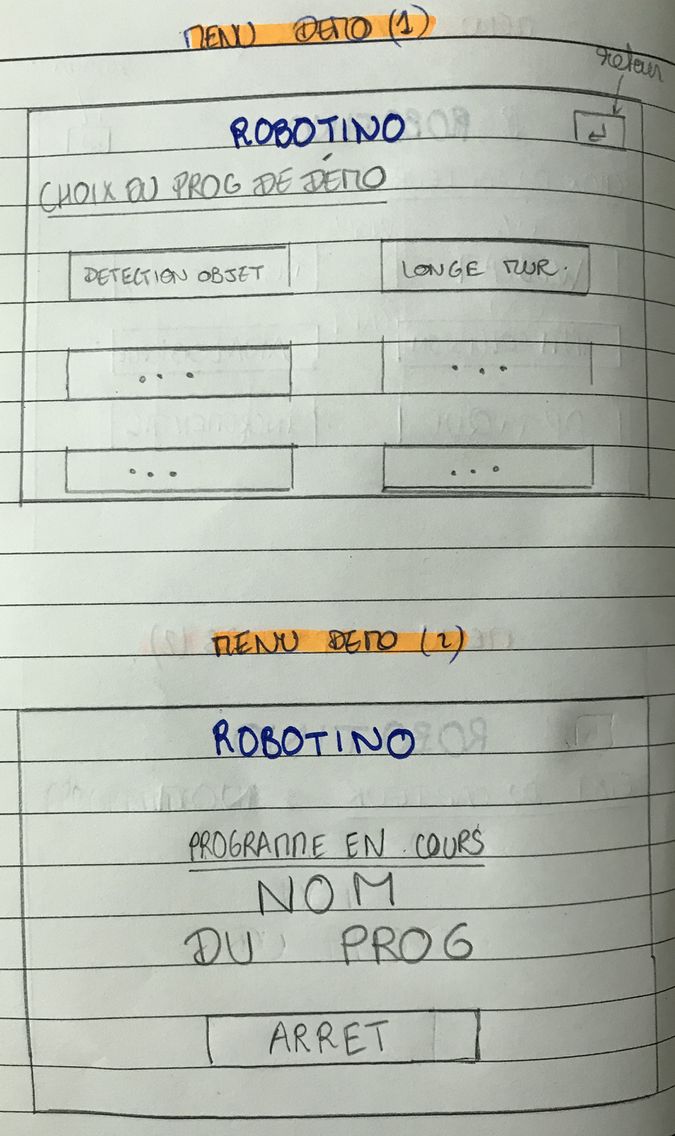 MENU DEMO (1)
retour
ROBOTINO
↵
CHOIX DU PROG DE DÉMO
DETECTION OBJET
LONGE MUR.
...
...
...
...
MENU DEMO (2)
ROBOTINO
PROGRAMME EN COURS
NOM
DU PROG
ARRET